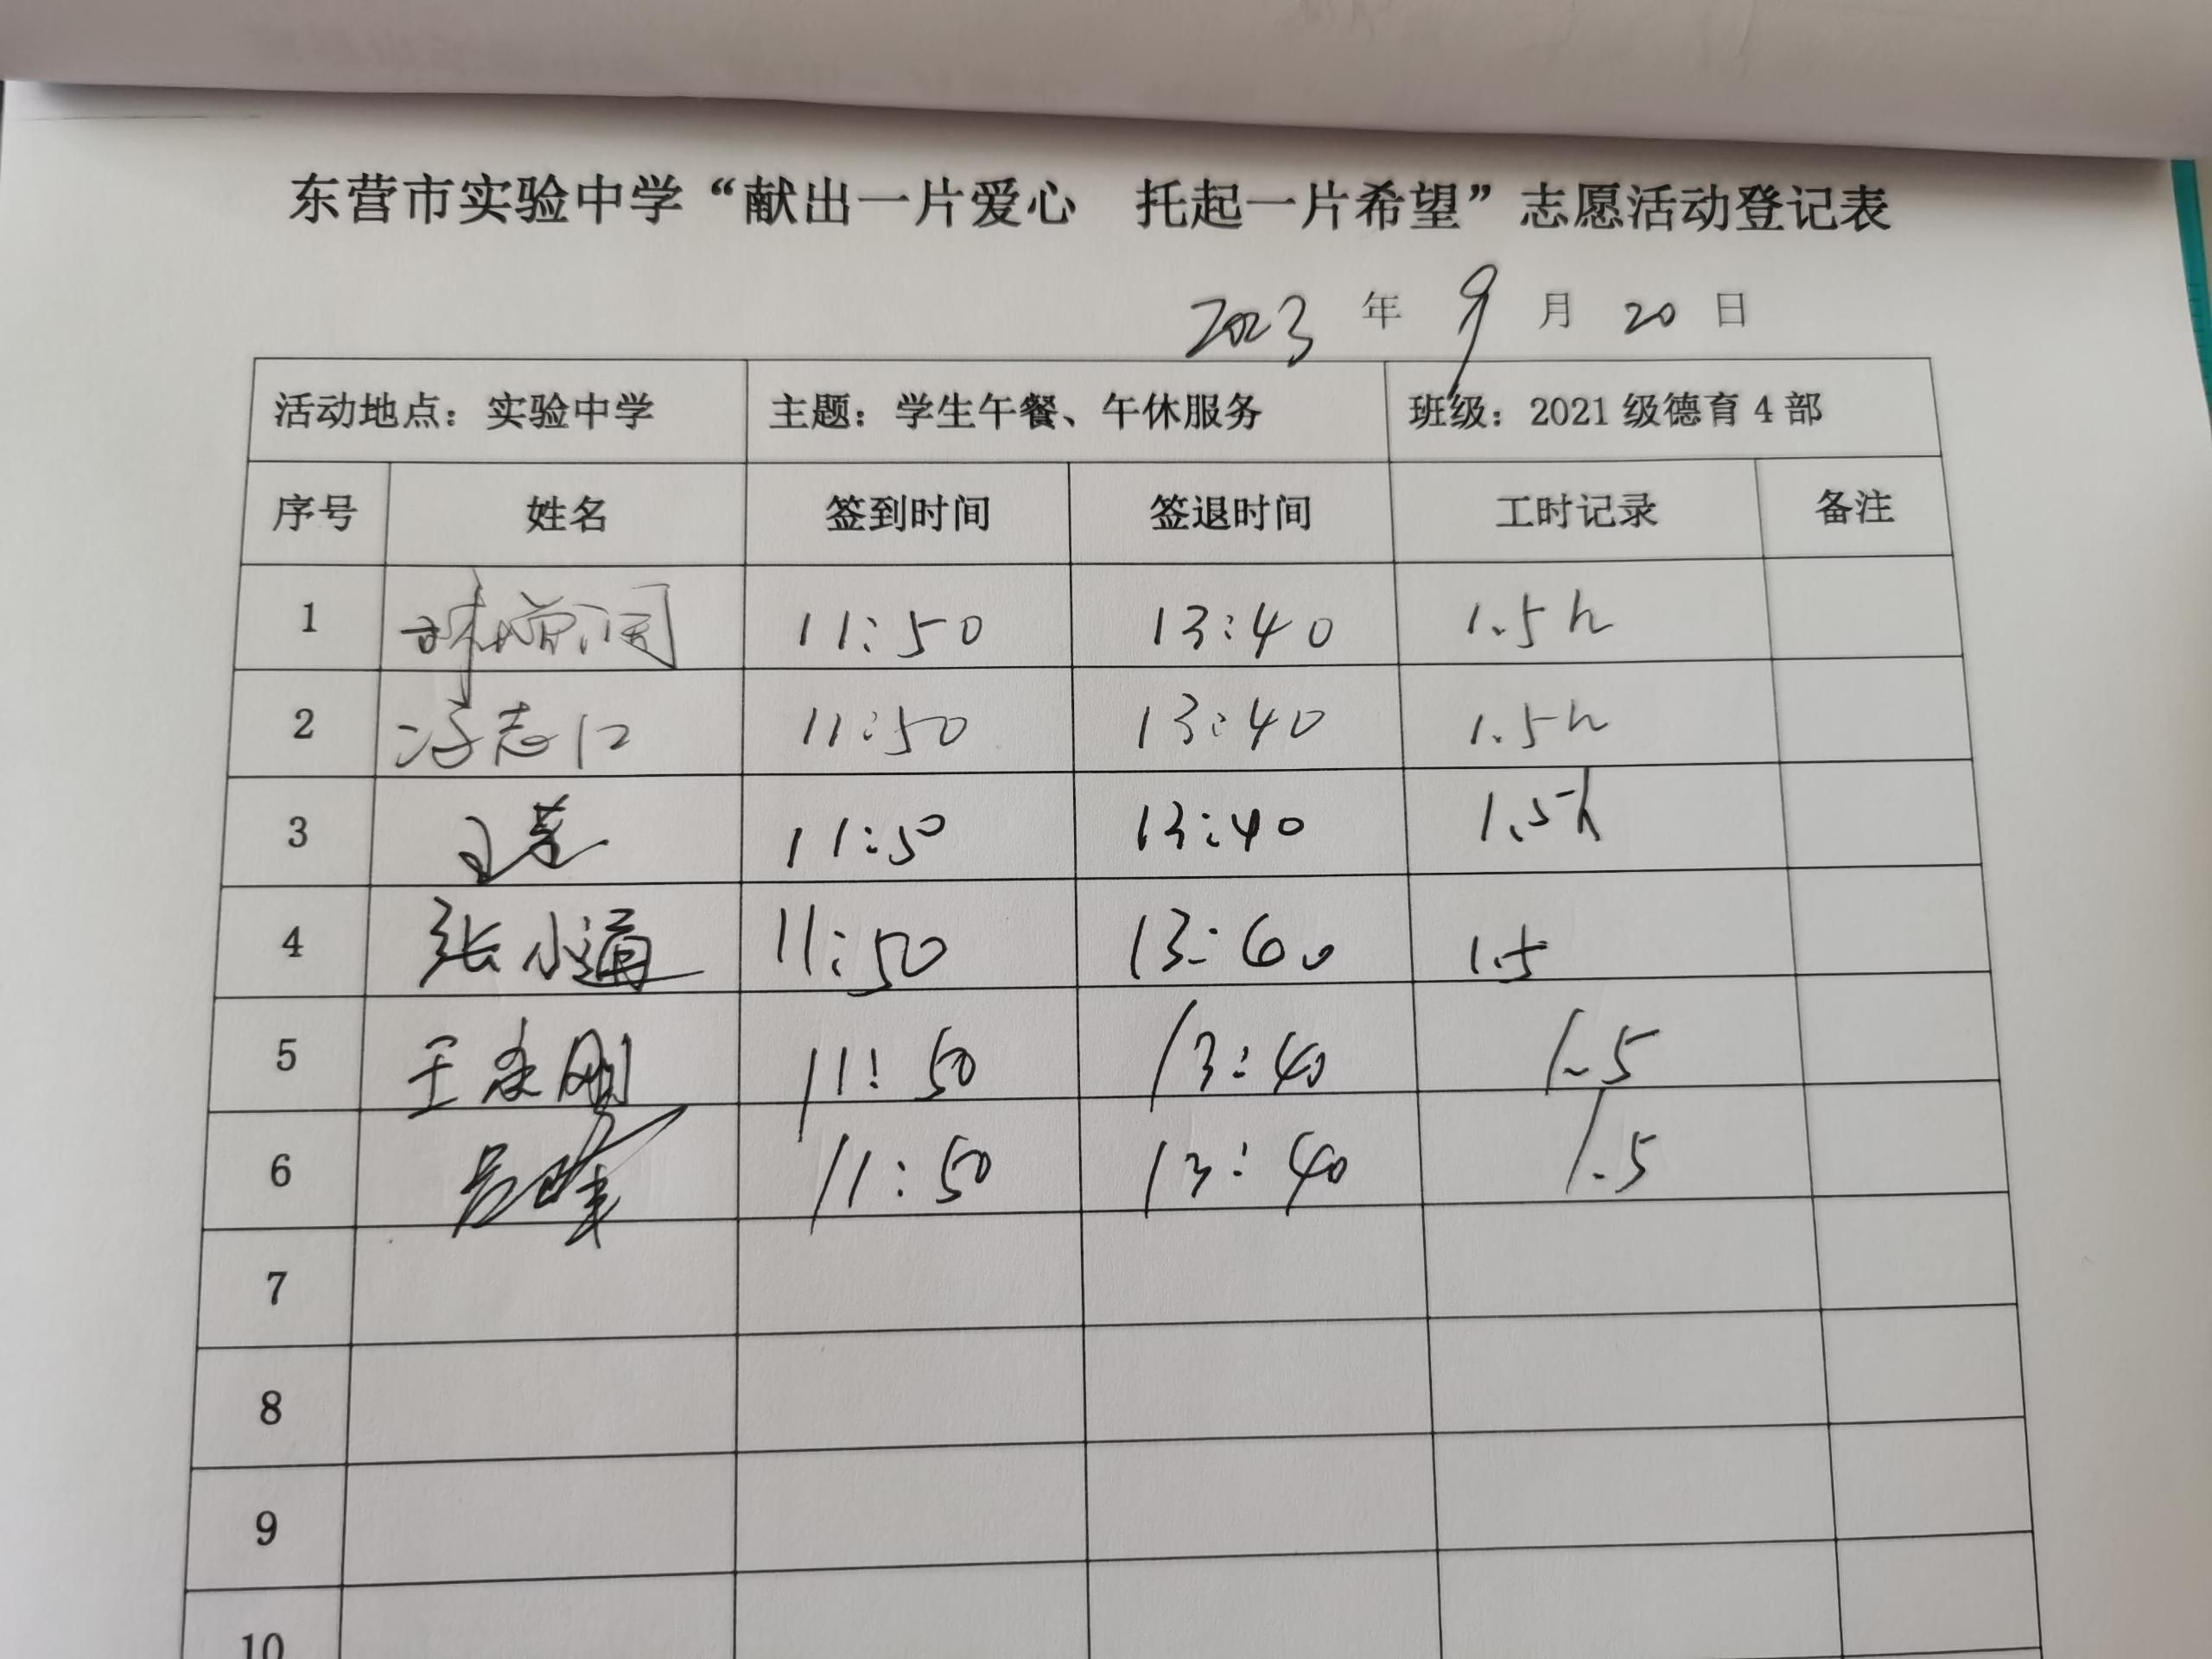 东营市实验中学“献出一片爱心 托起一片希望”志愿活动登记表
2023 年 9 月 20 日
活动地点：实验中学 主题：学生午餐、午休服务 班级：2021级德育4部
序号 姓名 签到时间 签退时间 工时记录 备注
1 11:50 13:40 1.5h
2 11:50 13:40 1.5h
3 11:50 13:40 1.5h
4 张小道 11:50 13:60 1.5
5 11:50 13:40 1.5
6 11:50 13:40 1.5
7
8
9
10